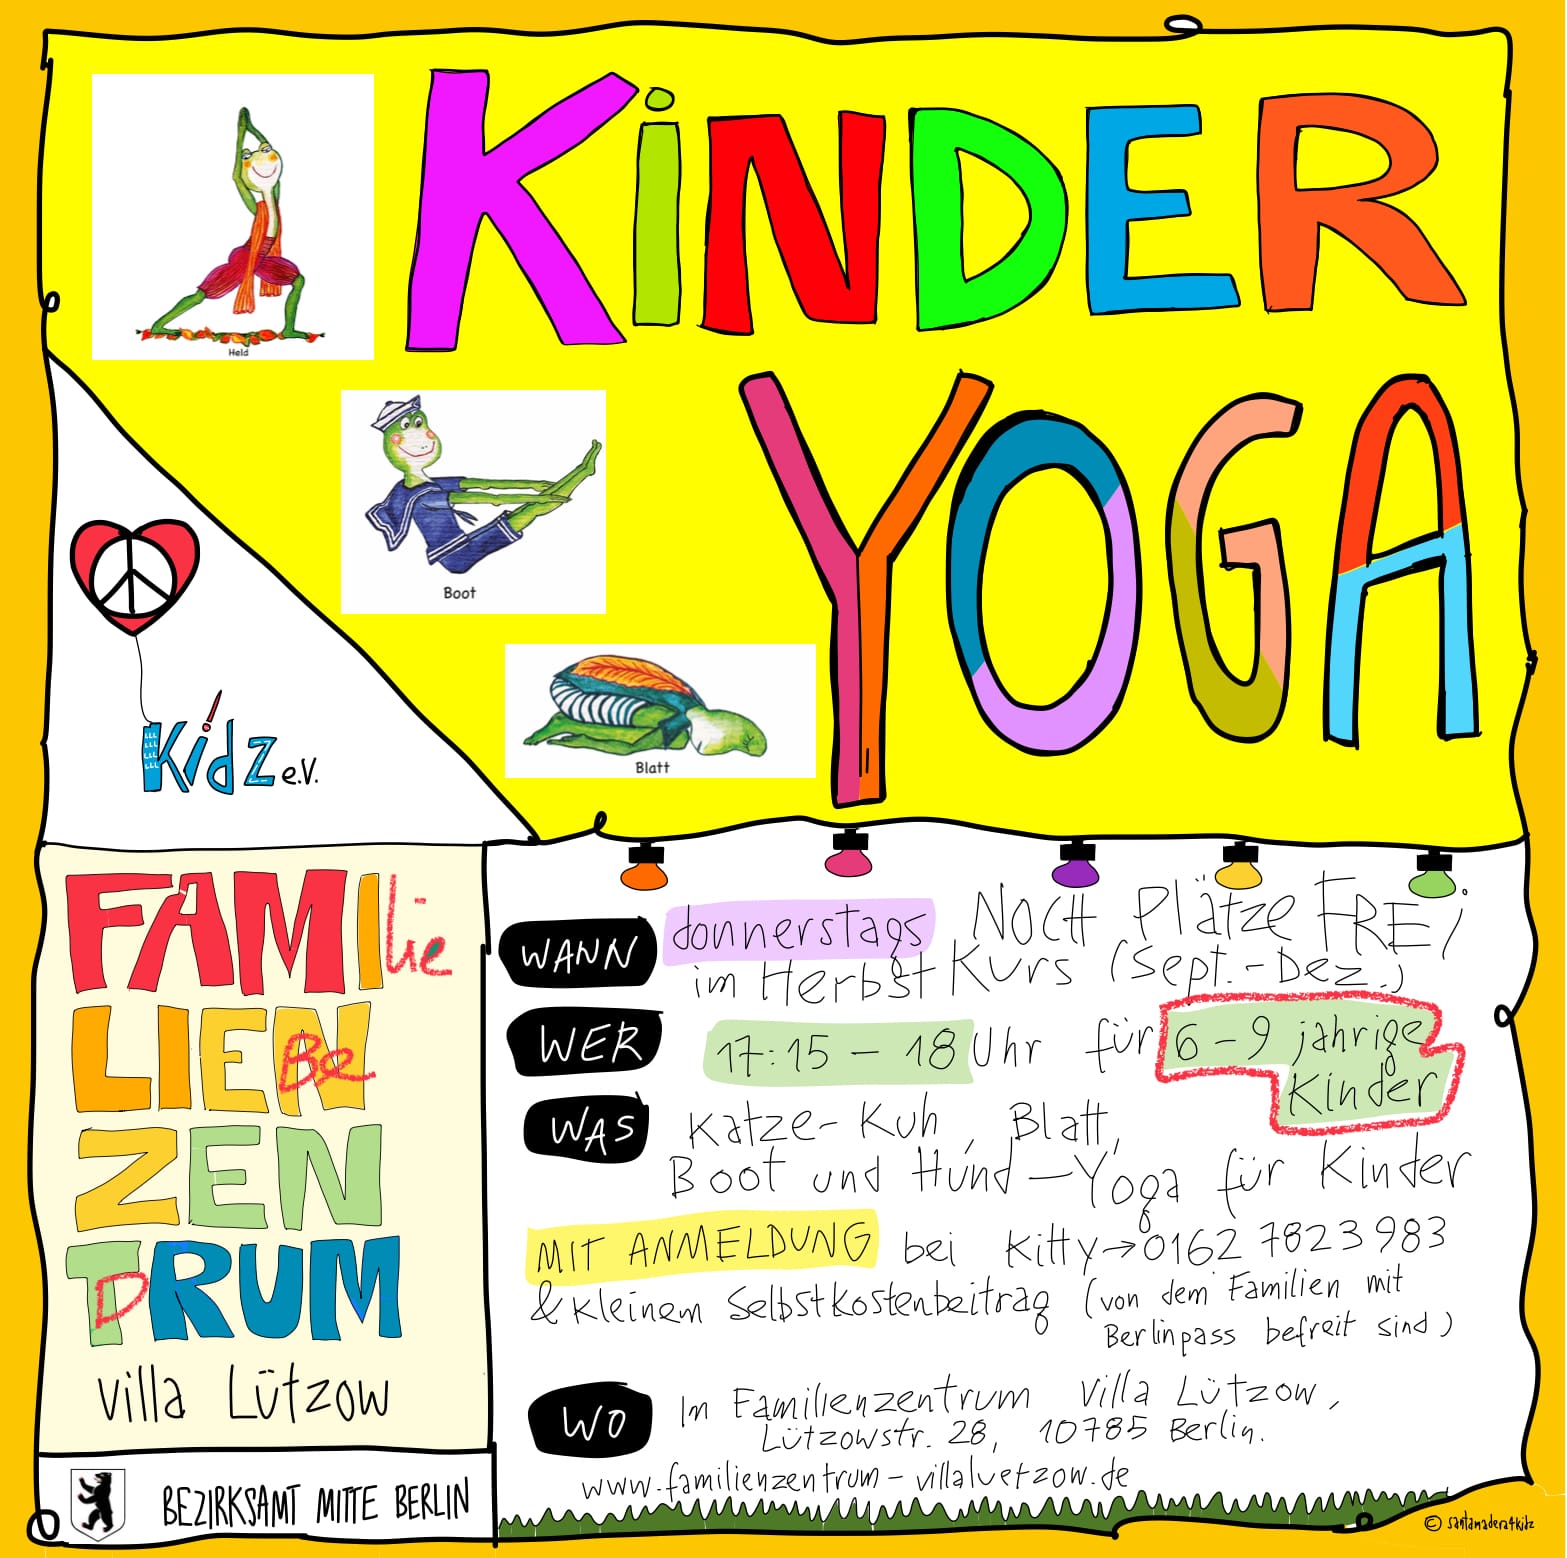 KiNDER
YOGA
Held
Boot
Blatt
Kidz e.V.
FAMIlie
LIEN
Be
ZEN
TRUM
Villa Lützow
BEZIRKSAMT MITTE BERLIN
WANN donnerstags NOCH Plätze FREi
im Herbst Kurs (Sept.-Dez.)
WER 17:15 – 18 Uhr für 6 – 9 jährige
Kinder
WAS Katze-Kuh, Blatt,
Boot und Hund – Yoga für Kinder
MIT ANMELDUNG bei Kitty → 0162 7823983
& kleinem Selbstkostenbeitrag (von dem Familien mit
Berlinpass befreit sind)
WO Im Familienzentrum Villa Lützow,
Lützowstr. 28, 10785 Berlin.
www.familienzentrum-villaluetzow.de
© santamadera4kidz